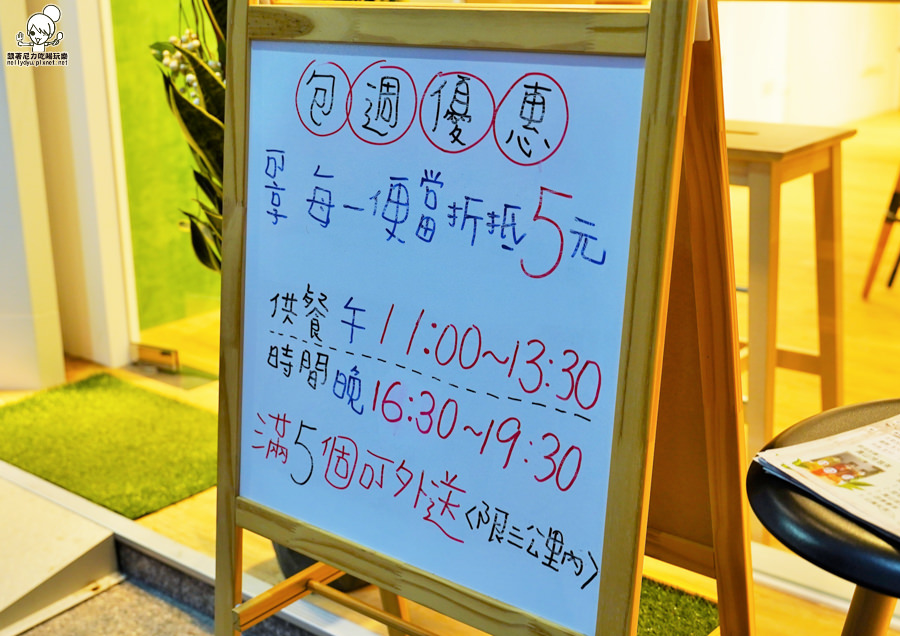 跟著尼力吃喝玩樂
nellydyu.pixnet.net
包週優惠
可享 每一便當折抵5元
供餐 午 11:00~13:30
時間 晚 16:30~19:30
滿5個可外送<限三公里內>